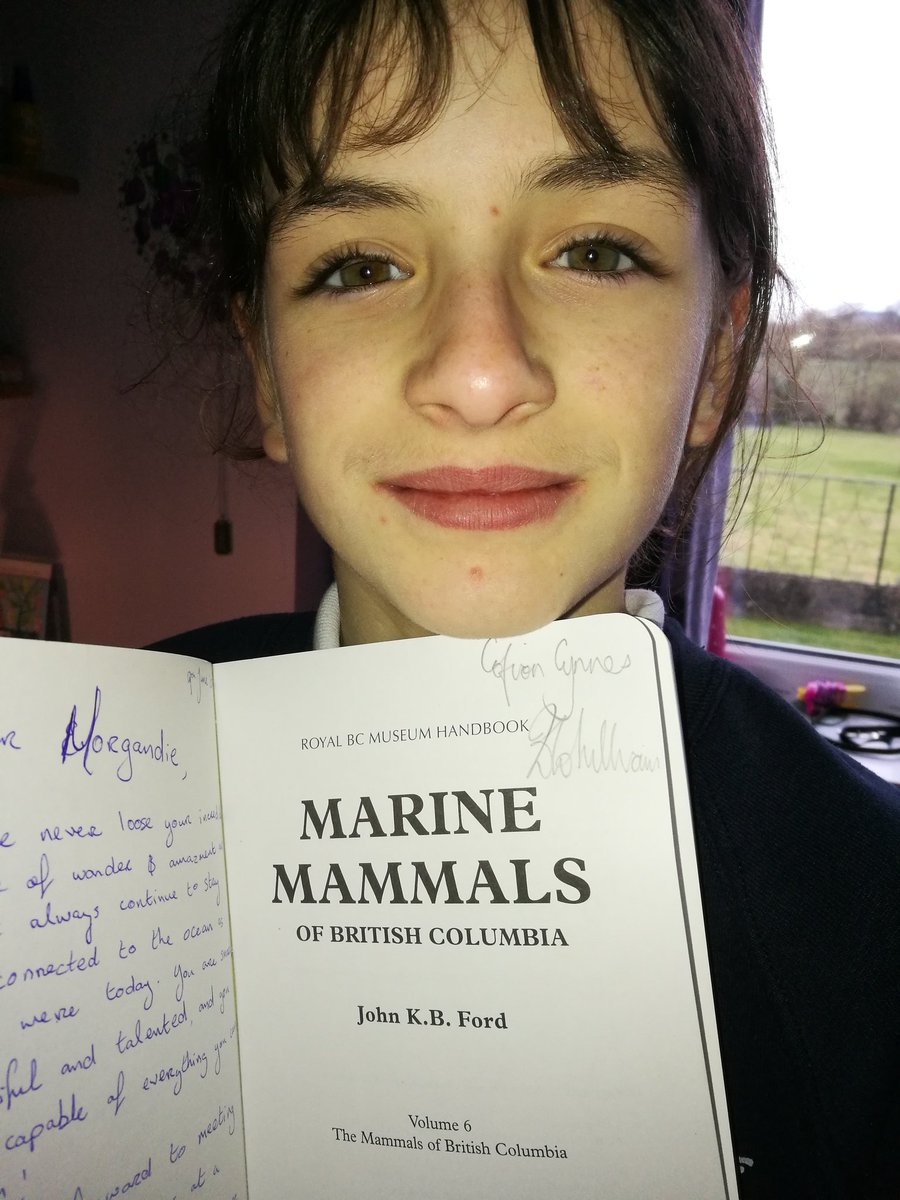 Morgandie,
never loose your
of wonder & amazment
always continue to stay
connected to the ocean as
were today. You are
and talented, and you
capable of everything you
to meeting
at a
Cofion Cynnes
ROYAL BC MUSEUM HANDBOOK
MARINE
MAMMALS
OF BRITISH COLUMBIA
John K.B. Ford
Volume 6
The Mammals of British Columbia